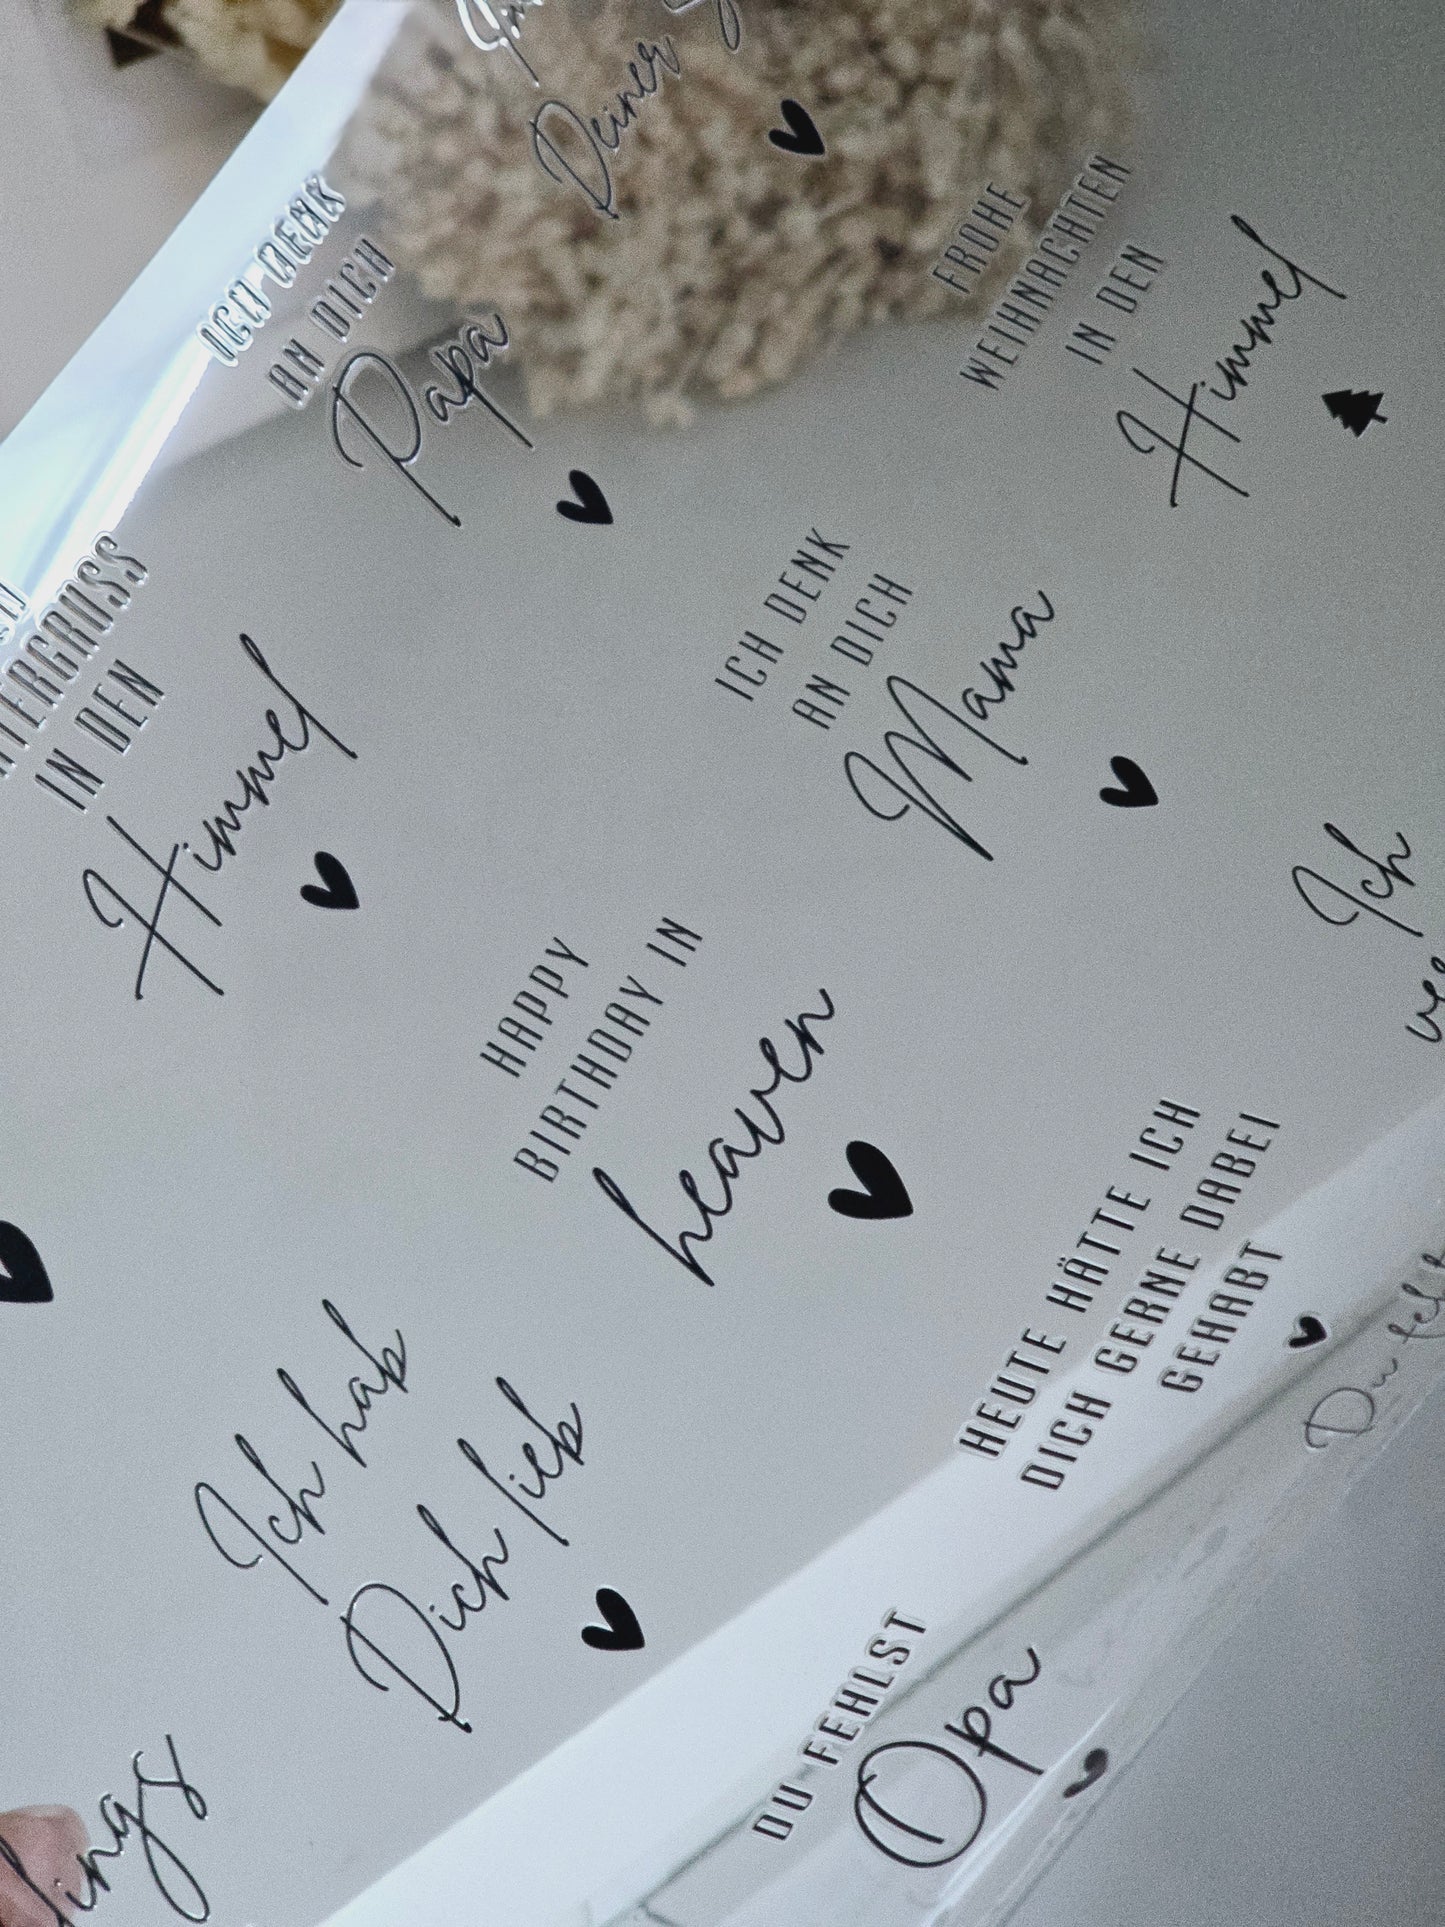 Deiner
ICH DENK
AN DICH
Papa
FROHE
WEIHNACHTEN
IN DEN
Himmel
IN DEN
Himmel
ICH DENK
AN DICH
Mama
Ich
HAPPY
BIRTHDAY IN
heaven
HEUTE HÄTTE ICH
DICH GERNE DABEI
GEHABT
Ich hab
Dich lieb
Du
DU FEHLST
Opa